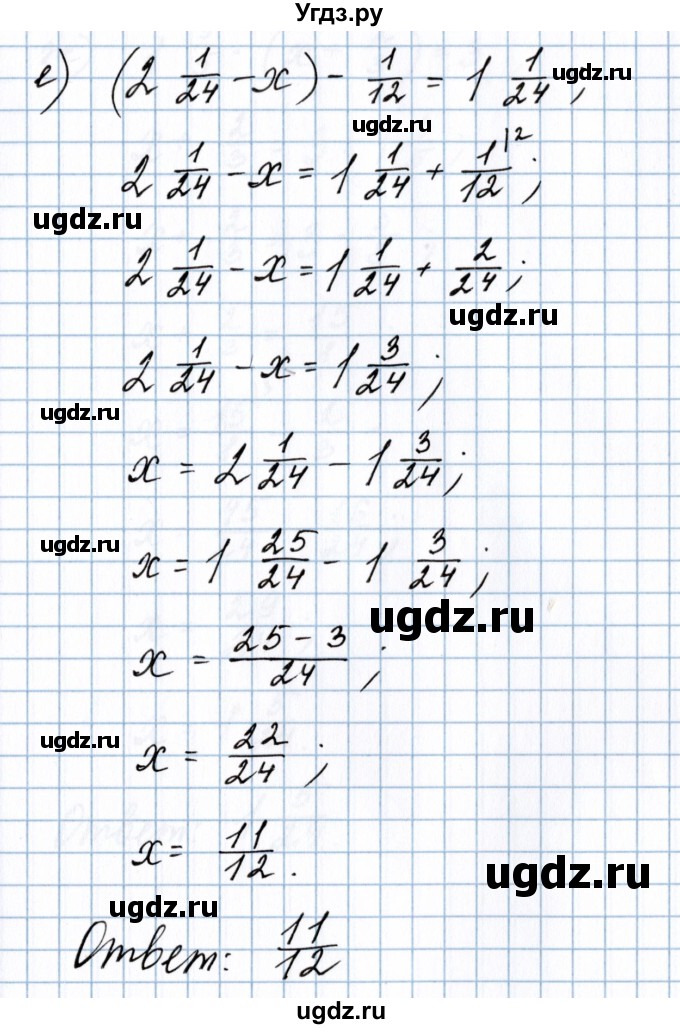 Угдз.ру
е) (2 1/24 - x) - 1/12 = 1 1/24;
ugdz.ru
ugdz.ru
2 1/24 - x = 1 1/24 + 1/12 |2;
ugdz.ru
2 1/24 - x = 1 1/24 + 2/24;
ugdz.ru
2 1/24 - x = 1 3/24;
ugdz.ru
x = 2 1/24 - 1 3/24;
ugdz.ru
x = 1 25/24 - 1 3/24;
ugdz.ru
x = (25 - 3)/24;
ugdz.ru
x = 22/24;
x = 11/12.
ugdz.ru
ugdz.ru
Ответ: 11/12
ugdz.ru